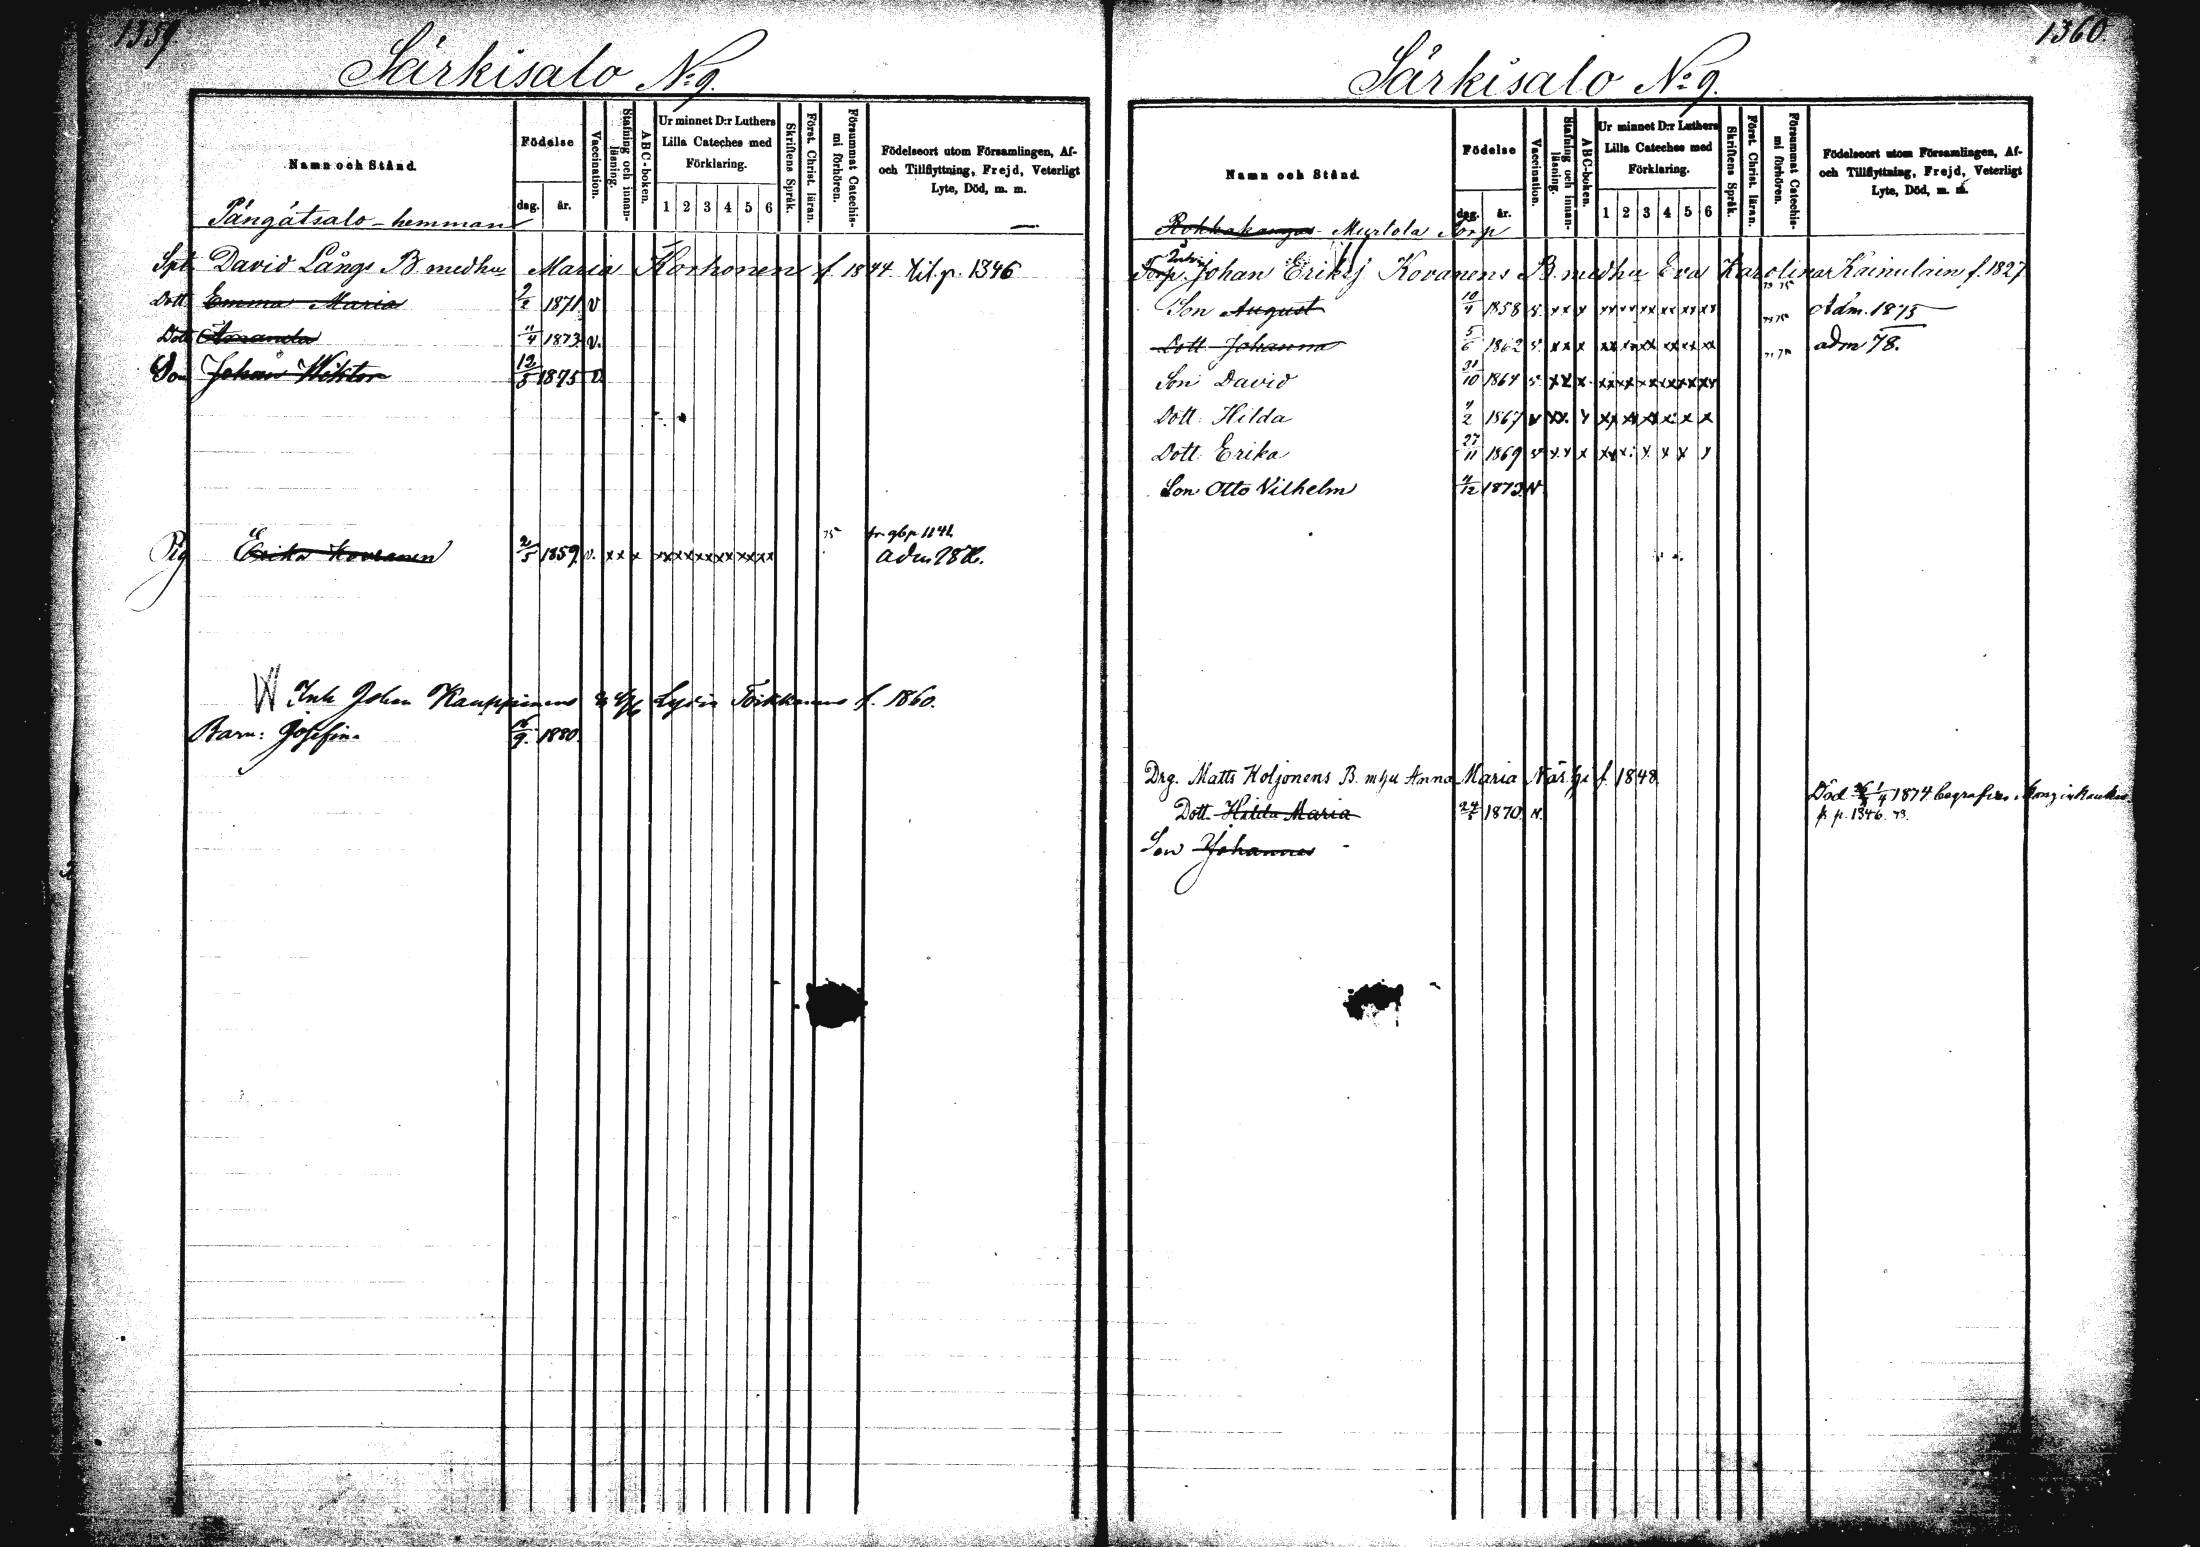 1359.
Särkisalo No 9.
Namn och Stånd.
Födelse
dag. år.
Vaccination.
Stafning och innan-läsning.
ABC-boken.
Ur minnet D:r Luthers
Lilla Cateches med
Förklaring.
1 2 3 4 5 6
Skriftens Språk.
Först. Christ. läran.
Försummat Catechis-
mi förhören.
Födelseort utom Församlingen, Af-
och Tillflyttning, Frejd, Veterligt
Lyte, Död, m. m.
Pångåtsalo - hemman
David Långs B medhu Maria Korhonen f. 1844 til p. 1346
Dott Emma Maria 2/2 1871 v
Dott Amanda 11/4 1873 v.
Son Johan Wiktor 12/5 1875 v.
75 fr. 96 p 1141.
Pig Erika Kovanen 2/5 1859. v. x x x xx xx xx xx xx xx adm
Inh Johan Kauppinens Lydia Toikkanens f. 1860.
Barn: Josefina 16/9. 1880.
1360
Särkisalo No 9.
Namn och Stånd.
Födelse
dag. år.
Vaccination.
Stafning och innan-läsning.
ABC-boken.
Ur minnet D:r Luthers
Lilla Cateches med
Förklaring.
1 2 3 4 5 6
Skriftens Språk.
Först. Christ. läran.
Försummat Catechis-
mi förhören.
Födelseort utom Församlingen, Af-
och Tillflyttning, Frejd, Veterligt
Lyte, Död, m. m.
Rokkakangas - Murtola Torp
Torp. Johan Eriksj Kovanens B. medhu Eva Karolina Kainulain f. 1827
Son August 10/4 1858 v. x x x xx xx xx xx xx xx 73 75 Adm. 1875
Dott Johanna 5/6 1862 v. x x x xx xx xx xx xx xx adm 78.
Son David 31/10 1864 v. x x x xx xx xx xx xx xx
Dott. Hilda 4/2 1867 v xx. x xx xx xx x x x
Dott. Erika 27/11 1869 v x x x xx x x x x x
Son Otto Vilhelm 4/12 1873 v.
Drg. Matts Koljonens B. mhu Anna Maria Närhi f. 1848.
Dott. Hilda Maria 24/5 1870. v. Död 1874 begrafven
p. 1346. 73.
Son Johannes